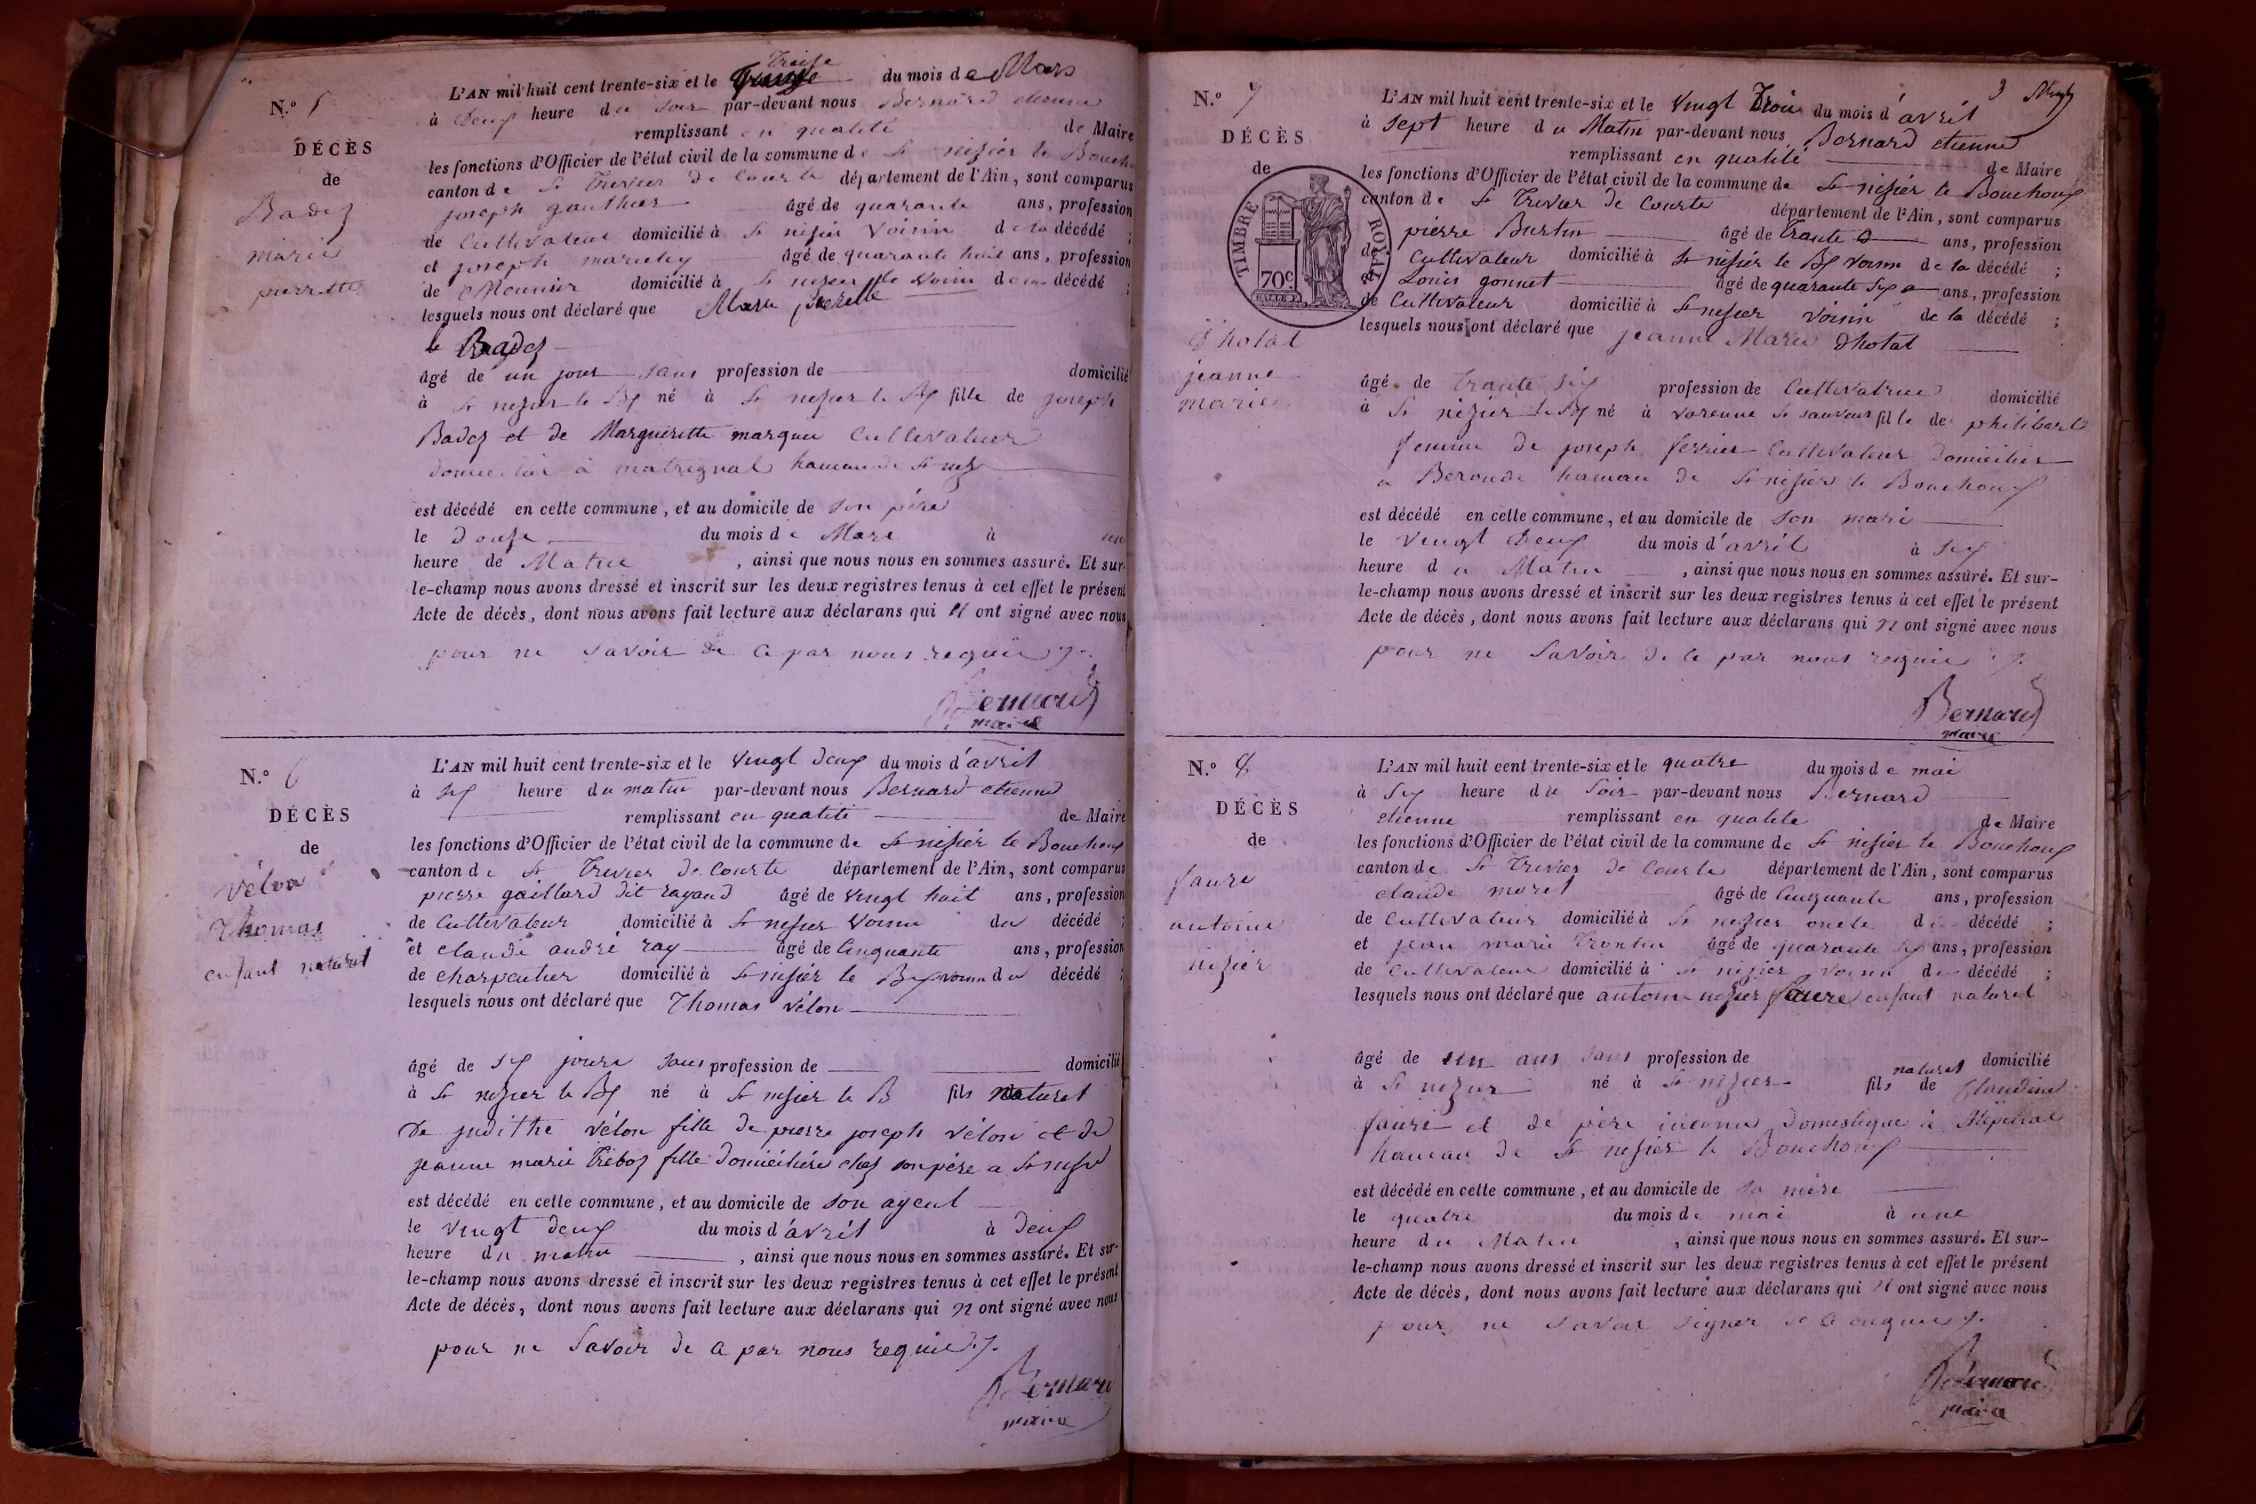 N.º 5
DÉCÈS
de
Badez
marie
pierrette
Treise
L'AN mil huit cent trente-six et le du mois de Mars
à Deux heure du soir par-devant nous Bernard etienne
remplissant en qualité de Maire
les fonctions d'Officier de l'état civil de la commune de St nisier le Bouchoux
canton de St Trivier de Courte département de l'Ain, sont comparus
joseph gauthier âgé de quarante ans, profession
de Cultivateur domicilié à St nisier Voisin de la décédé ;
et joseph âgé de quarante huit ans, profession
de Meunier domicilié à St nisier le voisin de la décédé ;
lesquels nous ont déclaré que Marie pierette
Badez
âgé de un jour sans profession de domicilié
à St nisier le Bx né à St nisier le Bx fille de joseph
Badez et de Margueritte marquis Cultivateur
domicilié à hameau de St
est décédé en cette commune, et au domicile de son père
le Douse du mois de Mars à une
heure de Matin , ainsi que nous nous en sommes assuré. Et sur-
le-champ nous avons dressé et inscrit sur les deux registres tenus à cet effet le présent
Acte de décès, dont nous avons fait lecture aux déclarans qui n ont signé avec nous
pour ne savoir de ce par nous requis
Bernard
maire
N.º 6
DÉCÈS
de
Vélon
Thomas
enfant naturel
L'AN mil huit cent trente-six et le vingt deux du mois d'avril
à six heure du matin par-devant nous Bernard etienne
remplissant en qualité de Maire
les fonctions d'Officier de l'état civil de la commune de St nisier le Bouchoux
canton de St Trivier de Courte département de l'Ain, sont comparus
pierre gaillard dit rayand âgé de vingt huit ans, profession
de Cultivateur domicilié à St nisier Voisin du décédé ;
et claude andré ray âgé de Cinquante ans, profession
de charpentier domicilié à St nisier le Bx voisin du décédé ;
lesquels nous ont déclaré que Thomas Vélon
âgé de six jours sans profession de domicilié
à St nisier le Bx né à St nisier le B fils naturel
De judithe vélon fille de pierre joseph vélon et de
jeanne marie Trèboz fille domiciliée chez son père a St nisier
est décédé en cette commune, et au domicile de son ayeul
le vingt deux du mois d'avril à deux
heure du matin , ainsi que nous nous en sommes assuré. Et sur-
le-champ nous avons dressé et inscrit sur les deux registres tenus à cet effet le présent
Acte de décès, dont nous avons fait lecture aux déclarans qui n ont signé avec nous
pour ne Savoir de ce par nous requis
Bernard
maire
3
N.º 7
DÉCÈS
de
TIMBRE ROYAL
70c
Dhotal
jeanne
marie
L'AN mil huit cent trente-six et le vingt Trois du mois d'avril
à sept heure du Matin par-devant nous Bernard etienne
remplissant en qualité de Maire
les fonctions d'Officier de l'état civil de la commune de St nisier le Bouchoux
canton de St Trivier de Courte département de l'Ain, sont comparus
pierre Burtin âgé de trante ans, profession
de Cultivateur domicilié à St nisier le Bx voisin de la décédé ;
Louis gonnet âgé de quarante six ans, profession
de Cultivateur domicilié à St nisier voisin de la décédé ;
lesquels nous ont déclaré que jeanne Marie Dhotal
âgé de trante six profession de Cultivatrice domicilié
à St nizier le Bx né à varenne St sauveur fille de philibert
femme de joseph ferrier Cultivateur domicilier
a Beronde hameau de St nisier le Bouchoux
est décédé en cette commune, et au domicile de son mari
le vingt Deux du mois d'avril à six
heure du Matin , ainsi que nous nous en sommes assuré. Et sur-
le-champ nous avons dressé et inscrit sur les deux registres tenus à cet effet le présent
Acte de décès, dont nous avons fait lecture aux déclarans qui n ont signé avec nous
pour ne Savoir de ce par nous requis
Bernard
maire
N.º 8
DÉCÈS
de
faure
antoine
nizier
L'AN mil huit cent trente-six et le quatre du mois de mai
à Six heure du Soir par-devant nous Bernard
etienne remplissant en qualité de Maire
les fonctions d'Officier de l'état civil de la commune de St nisier le Bouchoux
canton de St Trivier de Courte département de l'Ain, sont comparus
claude moret âgé de Cinquante ans, profession
de Cultivateur domicilié à St nizier oncle du décédé ;
et jean marie Trontin âgé de quarante six ans, profession
de Cultivateur domicilié à St nizier voisin du décédé ;
lesquels nous ont déclaré que antoine nizier faure enfant naturel
âgé de un ans sans profession de domicilié
à St nizier né à St nizier fils naturel de Claudine
faure et de père inconnu domestique à
hameau de St nisier le Bouchoux
est décédé en cette commune, et au domicile de sa mère
le quatre du mois de mai à une
heure du Matin , ainsi que nous nous en sommes assuré. Et sur-
le-champ nous avons dressé et inscrit sur les deux registres tenus à cet effet le présent
Acte de décès, dont nous avons fait lecture aux déclarans qui n ont signé avec nous
pour ne savoir signer de ce requis
Bernard
maire